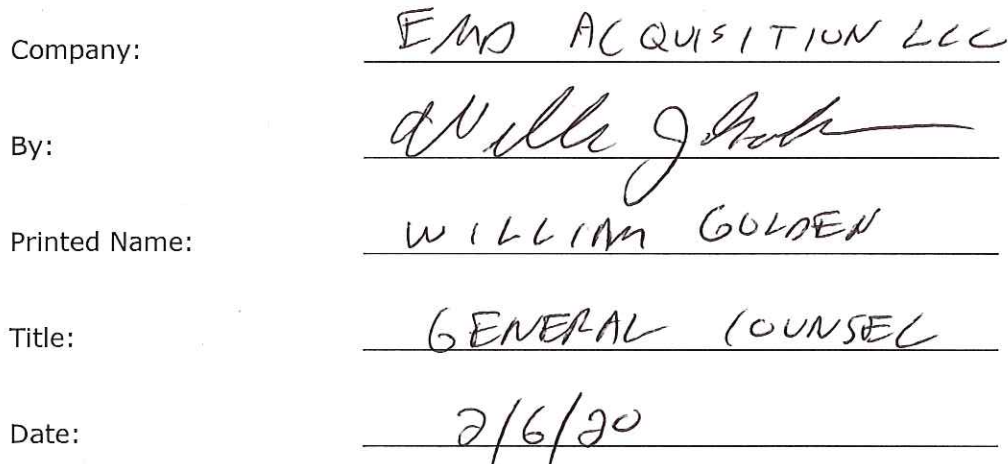 Company: EMD ACQUISITION LLC
By:
Printed Name: WILLIAM GOLDEN
Title: GENERAL COUNSEL
Date: 2/6/20